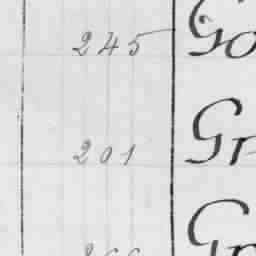 245 Go
201 Gr
Gr